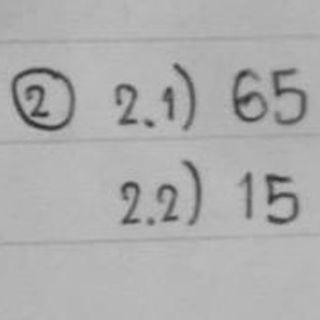 ② 2.1) 65
2.2) 15